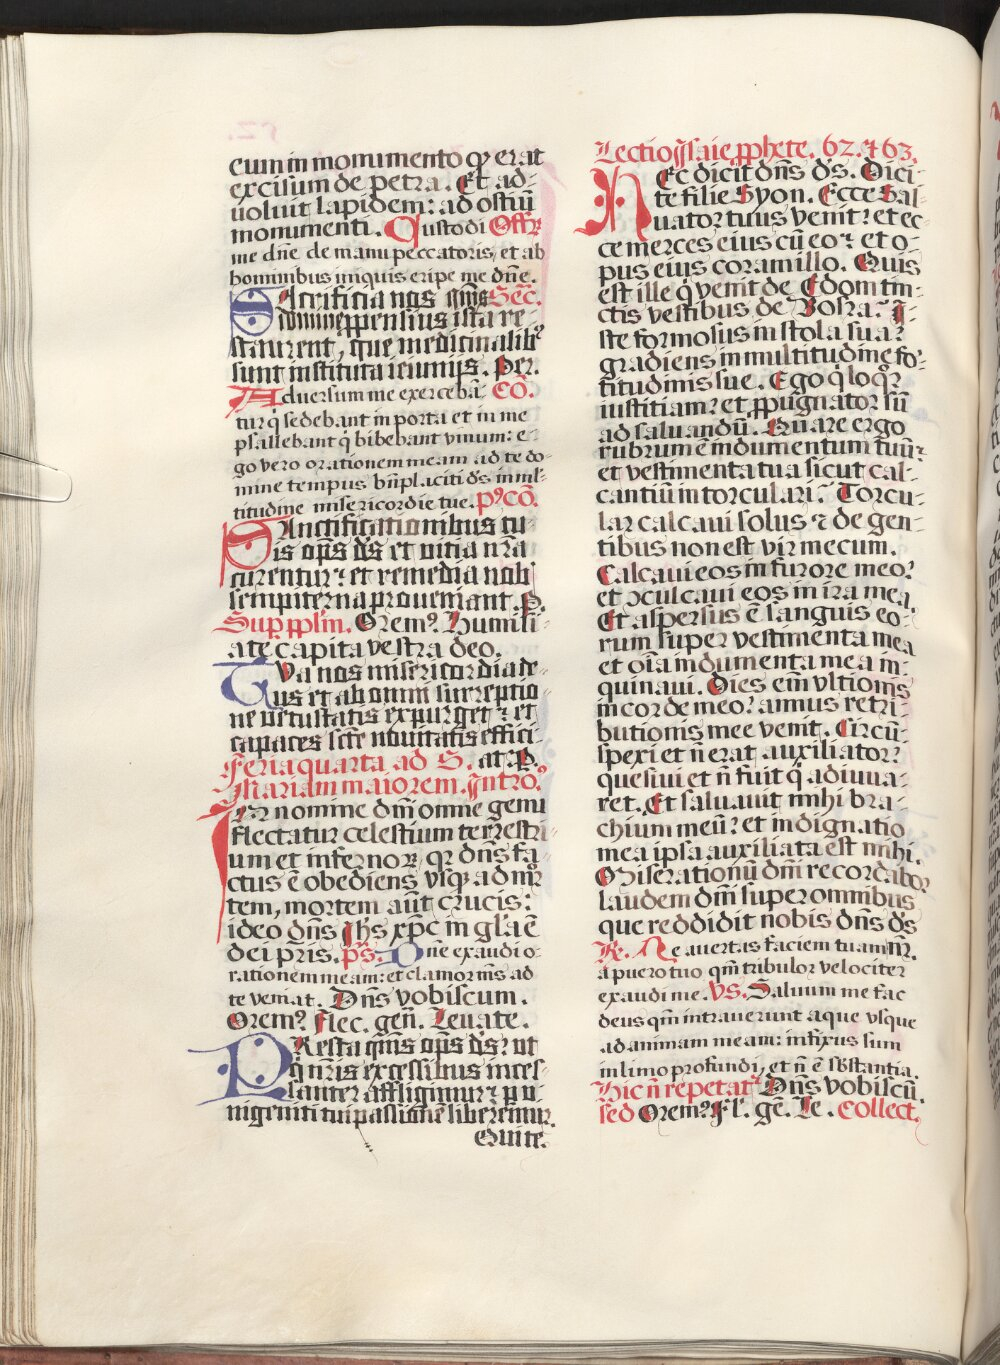 eum in monumento qđ erat
excisum de petra. Et ad-
uoluit lapidem: ad ostiū
monumenti. Custodi Offr̄
me dn̄e de manu peccatoris, et ab
hominibus iniquis eripe me dn̄e.
SAcrificia nos qm̄s Sec̄.
domine ppensius ista re-
staurent, que medicinalibꝰ
sunt instituta ieiunijs. Per.
Aduersum me exercebā Cō.
tur q̇ sedebant in porta et in me
psallebant q̇ bibebant vinum: e-
go vero orationem meam ad te do-
mine tempus bn̄placiti ds̄ in ml-
titudine misericordie tue. Pꝰcō.
SAnctificationibus tu-
is op̄s ds̄ et vitia nr̄a
curentur: et remedia nob̄
sempiterna proueniant. P.
Sup pplm̄. Oremꝰ. Humili-
ate capita vestra deo.
TVa nos misericordia de-
us et ab omni surreptio-
ne vetustatis expurget: et
capaces scte nouitatis effici-
Feria quarta ad S. at. P.
Mariam maiorem. Introꝰ
IN nomine dn̄i omne genu
flectatur celestium terrestri-
um et infernoꝝ, qꝛ dn̄s fa-
ctus ē obediens vsqꝫ ad mor-
tem, mortem aūt crucis:
ideo dn̄s Ihs xp̄c in gl̄a ē
dei pr̄is. ps̄. Dn̄e exaudi o-
rationem meam: et clamor ms̄ ad
te veniat. Dn̄s vobiscum.
Oremꝰ. flec. gen̄. Leuate.
PResta qm̄s op̄s ds̄: ut
q nr̄is excessibus inces-
santer affligimur: p v-
nigeniti tui passionē liberemur.
Qui te.
Lectio Isaie pphete. 62. et 63.
HEc dicit dn̄s ds̄. Dici-
te filie Syon. Ecce Sal-
uator tuus venit: et ec-
ce merces eius cū eo: et o-
pus eius coram illo. Quis
est ille q̇ venit de Edom tin-
ctis vestibus de Bosra: I-
ste formosus in stola sua:
gradiens in multitudine for-
titudinis sue. Ego q̇ loqr̄
iustitiam: et ppugnator sū
ad saluandū. Quare ergo
rubrum ē indumentum tuū:
et vestimenta tua sicut cal-
cantiū in torculari: Torcu-
lar calcaui solus: de gen-
tibus non est vir mecum.
Calcaui eos in furore meo:
et conculcaui eos in ira mea.
Et aspersus ē sanguis eo-
rum super vestimenta mea
et oīa indumenta mea in-
quinaui. Dies em̄ vltionis
in corde meo: annus retri-
butionis mee venit. Circū-
spexi et n̄ erat auxiliator:
quesiui et n̄ fuit q̇ adiuua-
ret. Et saluauit mihi bra-
chium meū: et indignatio
mea ipsa auxiliata est mihi.
Miserationū dn̄i recordabor
laudem dn̄i super omnibus
que reddidit nobis dn̄s ds̄
R. Ne auertas faciem tuam nr̄.
a puero tuo qm̄ tribulor velociter
exaudi me. VS. Saluum me fac
deus qm̄ intrauerunt aque vsque
ad animam meam: infixus sum
in limo profundi, et n̄ ē sb̄stantia.
Hic n̄ repetatꝰ Dn̄s vobiscū.
sed Oremꝰ. Fl. gē. Le. Collect.